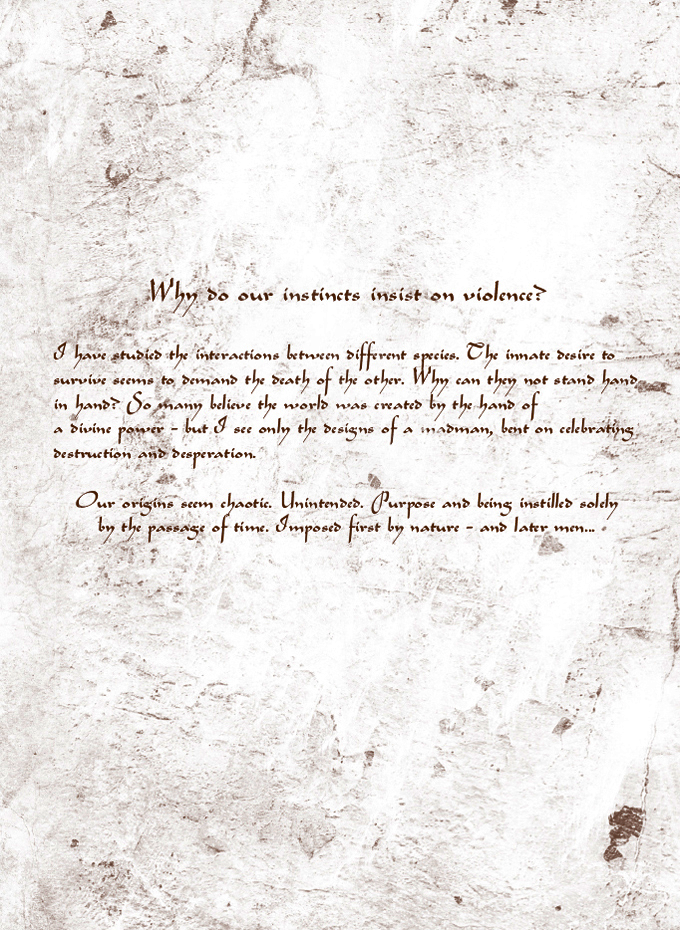 Why do our instincts insist on violence?
I have studied the interactions between different species. The innate desire to
survive seems to demand the death of the other. Why can they not stand hand
in hand? So many believe the world was created by the hand of
a divine power - but I see only the designs of a madman, bent on celebrating
destruction and desperation.
Our origins seem chaotic. Unintended. Purpose and being instilled solely
by the passage of time. Imposed first by nature - and later men...